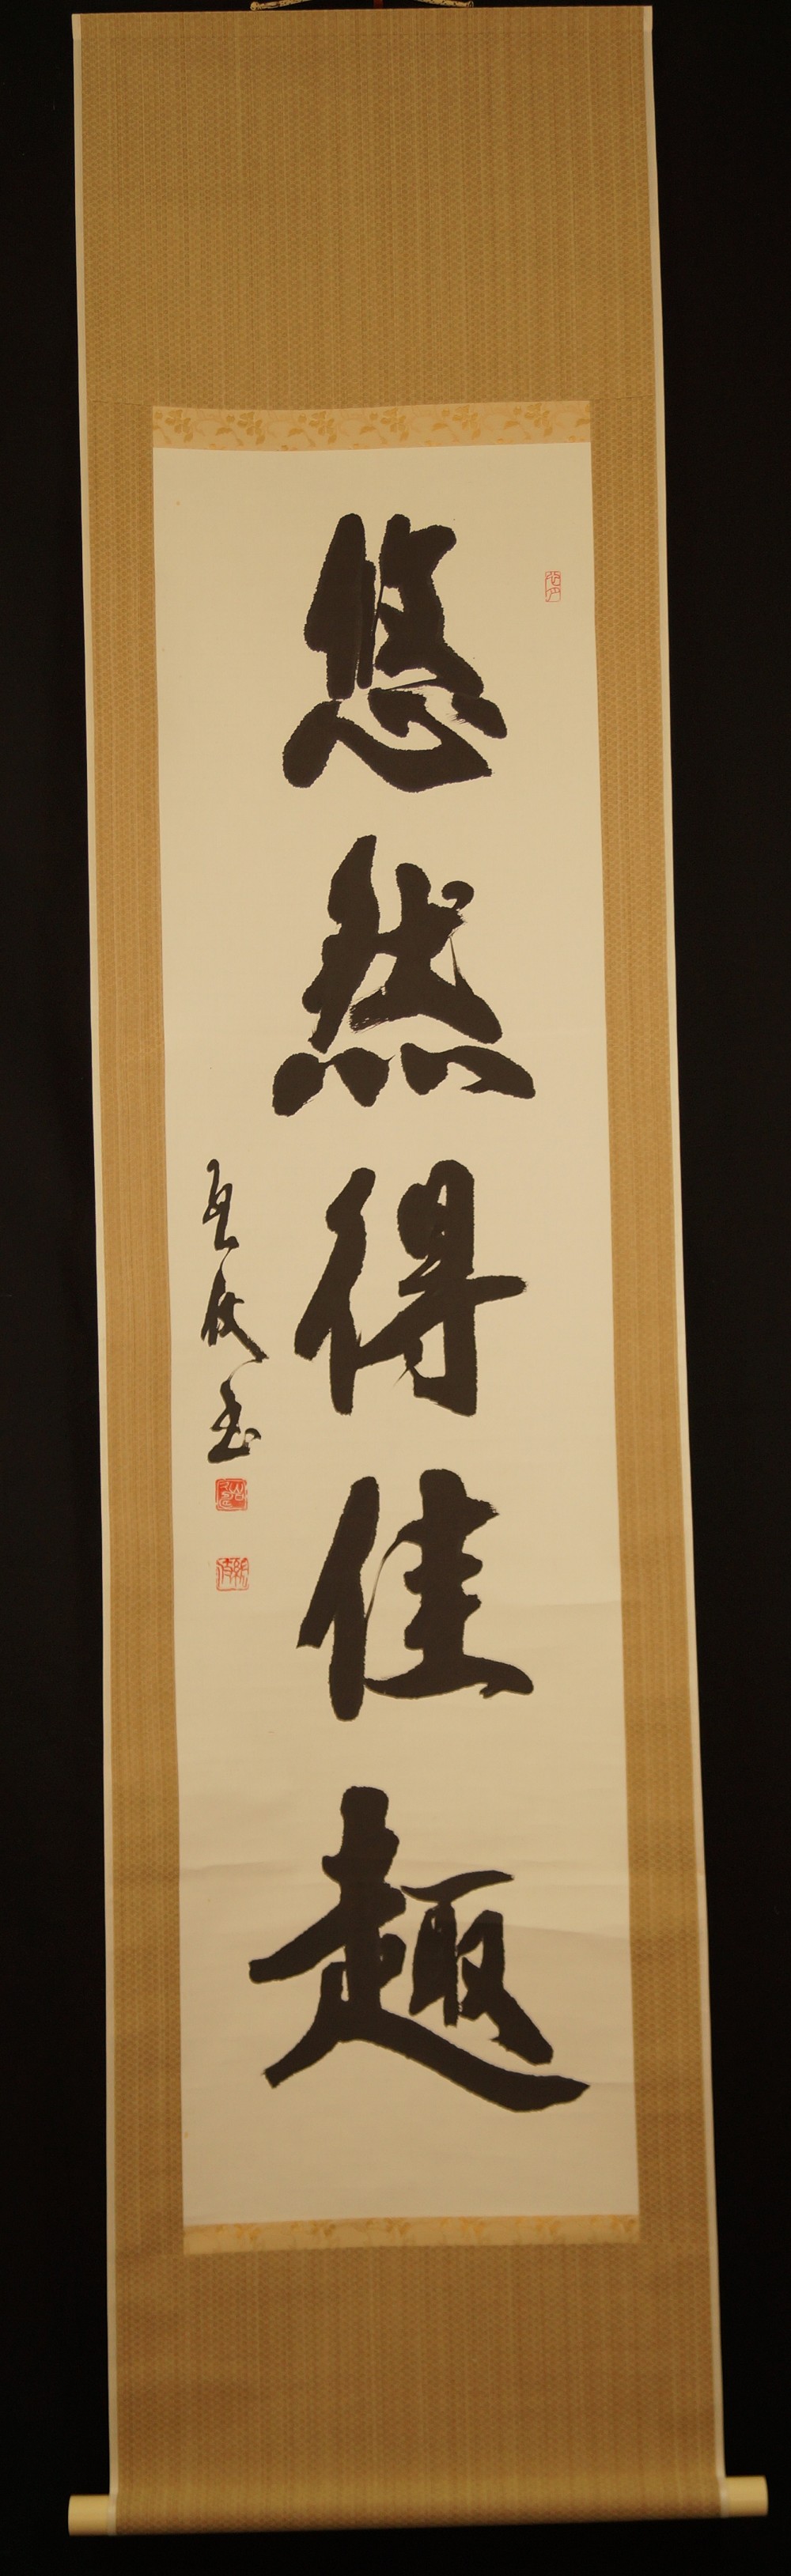 悠然得佳趣